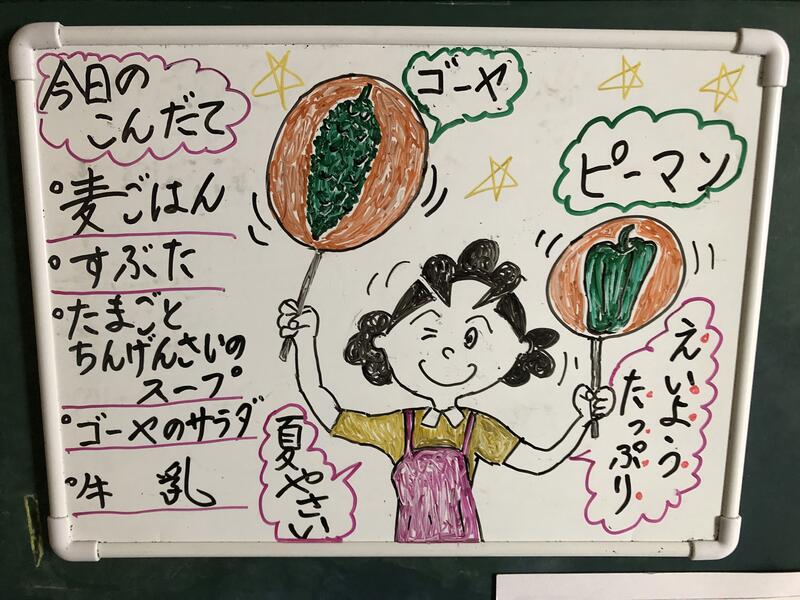 今日の
こんだて
麦ごはん
すぶた
たまごと
ちんげんさいの
スープ
ゴーヤのサラダ
牛乳
ゴーヤ
ピーマン
夏やさい
えいよう
たっぷり